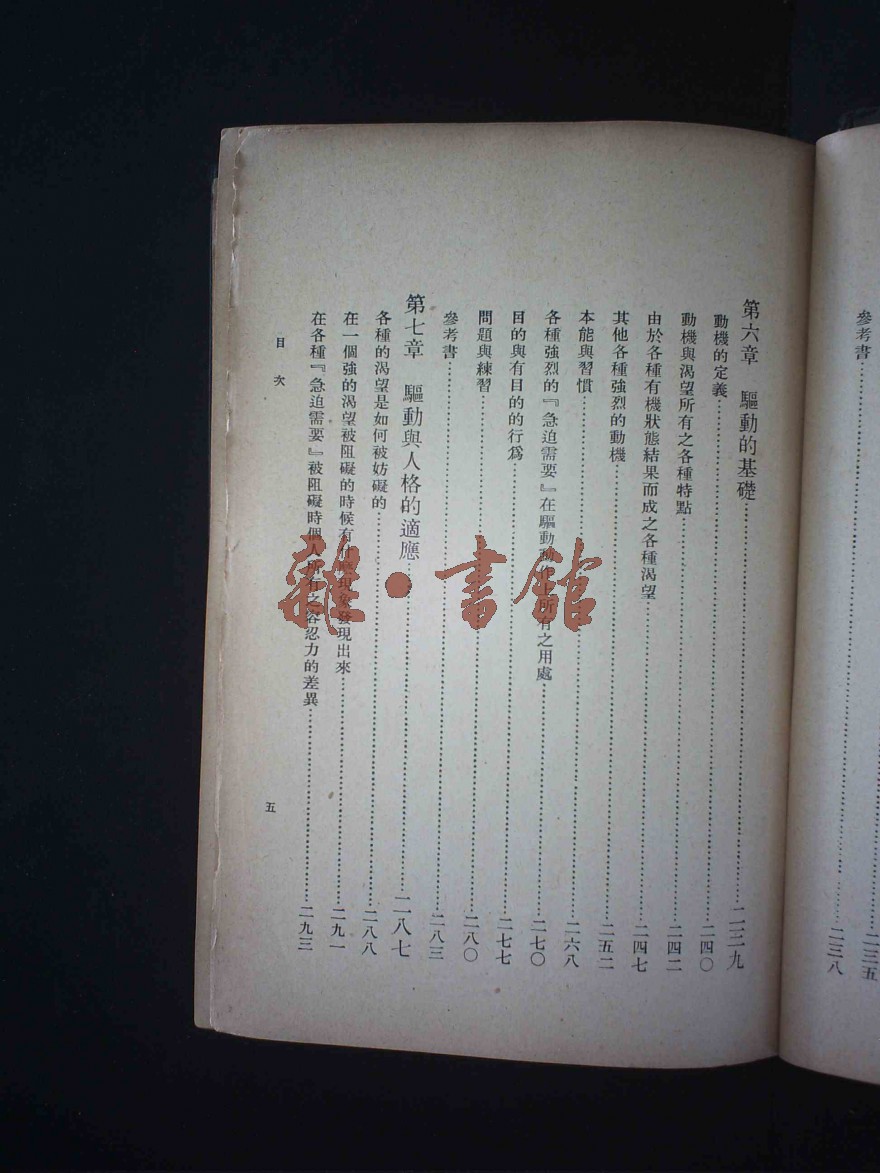 參考書
二三五
二三八
第六章 驅動的基礎……二三九
動機的定義……二四〇
動機與渴望所有之各種特點……二四二
由於各種有機狀態結果而成之各種渴望……二四七
其他各種強烈的動機……二五二
本能與習慣……二六八
各種強烈的『急迫需要』在驅動 上所有之用處……二七〇
目的與有目的的行為……二七七
問題與練習……二八〇
參考書……二八三
第七章 驅動與人格的適應……二八七
各種的渴望是如何被妨礙的……二八八
在一個強的渴望被阻礙的時候有 現象發現出來……二九一
在各種『急迫需要』被阻礙時個人所有之容忍力的差異……二九三
目次
五
雜·書館